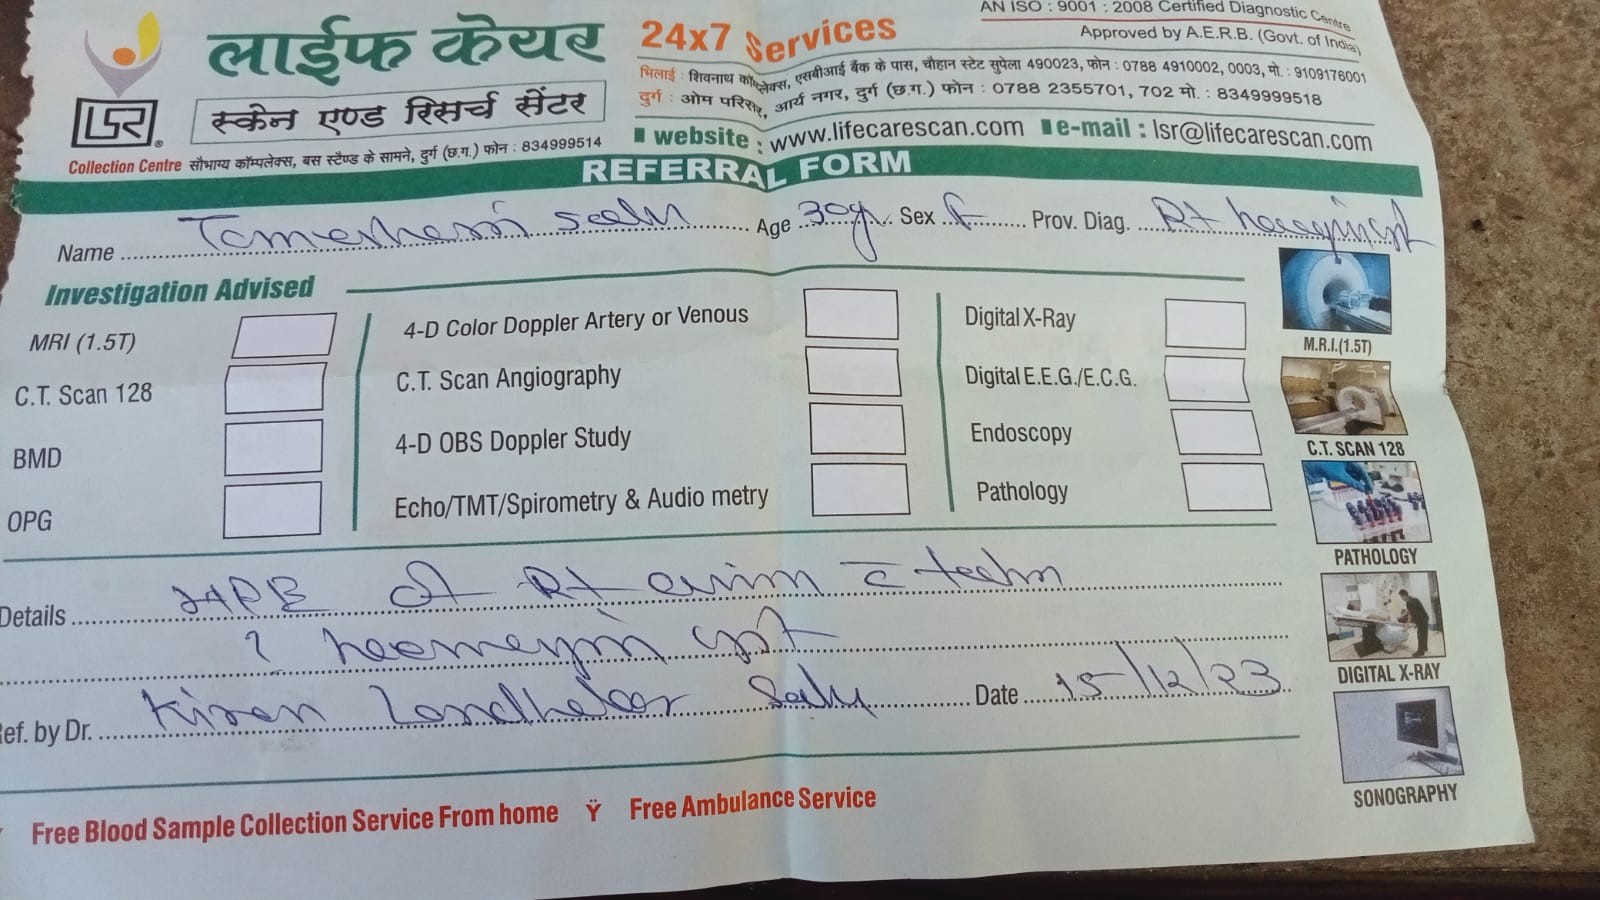 लाईफ केयर
स्केन एण्ड रिसर्च सेंटर
LSR
Collection Centre सौभाग्य कॉम्पलेक्स, बस स्टैण्ड के सामने, दुर्ग (छ.ग.) फोन : 834999514
AN ISO : 9001 : 2008 Certified Diagnostic Centre
Approved by A.E.R.B. (Govt. of India)
24x7 Services
भिलाई : शिवनाथ कॉम्पलेक्स, एसबीआई बैंक के पास, चौहान स्टेट सुपेला 490023, फोन : 0788 4910002, 0003, मो. : 9109176001
दुर्ग : ओम परिसर, आर्य नगर, दुर्ग (छ.ग.) फोन : 0788 2355701, 702 मो. : 8349999518
website : www.lifecarescan.com e-mail : lsr@lifecarescan.com
REFERRAL FORM
Name Age 30y Sex F Prov. Diag. Rt
Investigation Advised
MRI (1.5T) 4-D Color Doppler Artery or Venous Digital X-Ray
C.T. Scan 128 C.T. Scan Angiography Digital E.E.G./E.C.G.
BMD 4-D OBS Doppler Study Endoscopy
OPG Echo/TMT/Spirometry & Audio metry Pathology
M.R.I.(1.5T)
C.T. SCAN 128
PATHOLOGY
DIGITAL X-RAY
SONOGRAPHY
Details HPE of Rt
? cyst
Ref. by Dr. Kiran Date 15/12/23
Free Blood Sample Collection Service From home Ÿ Free Ambulance Service